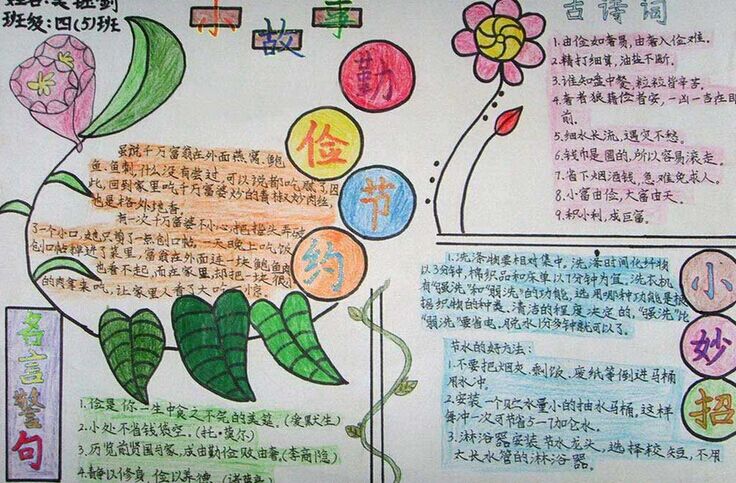 姓名:
班级:四(5)班
小故事
勤俭节约
虽说千万富翁在外面燕窝、鲍
鱼、鱼刺,什么没有尝过,可以说都吃腻了,因
此,回到家里吃千万富婆炒的青椒炒肉丝,
也是格外
有一次千万富婆不小心把指头弄破
了一个小口,她只剪了一点创口帖,一天晚上吃饭
创口帖掉进了菜里,富翁在外面连一块鲍鱼肉
也看不起,而在家里,却把一块很小
的肉拿来吃,让家里人看了大吃一惊。
名言警句
1.俭是你一生中食之不完的美筵。(爱默生)
2.小处不省钱袋空。(托·莫尔)
3.历览前贤国与家,成由勤俭败由奢。(李商隐)
4.静以修身,俭以养德。(诸葛亮)
古诗词
1.由俭如奢易,由奢入俭难。
2.精打细算,油盐不断。
3.谁知盘中餐,粒粒皆辛苦。
4.奢者狼藉俭者安,一凶一吉在眼
前。
5.细水长流,遇灾不愁。
6.钱币是圆的,所以容易滚走。
7.省下烟酒钱,急难免求人。
8.小富由俭,大富由天。
9.积小利,成巨富。
小妙招
1.洗涤物要相对集中。洗涤时间化纤物
以3分钟,棉织品和床单以7分钟为宜。洗衣机
有"强洗"和"弱洗"的功能,选用哪种功能是根
据织物的种类、清洁的程度决定的,"强洗"比
"弱洗"要省电。脱水1分多钟就可以了。
节水的好方法:
1.不要把烟灰、剩饭、废纸等倒进马桶
用水冲。
2.安装一个贮水量小的抽水马桶,这样
每冲一次可节省5—7加仑水。
3.淋浴器安装节水龙头,选择较短、不用
太长水管的淋浴器。